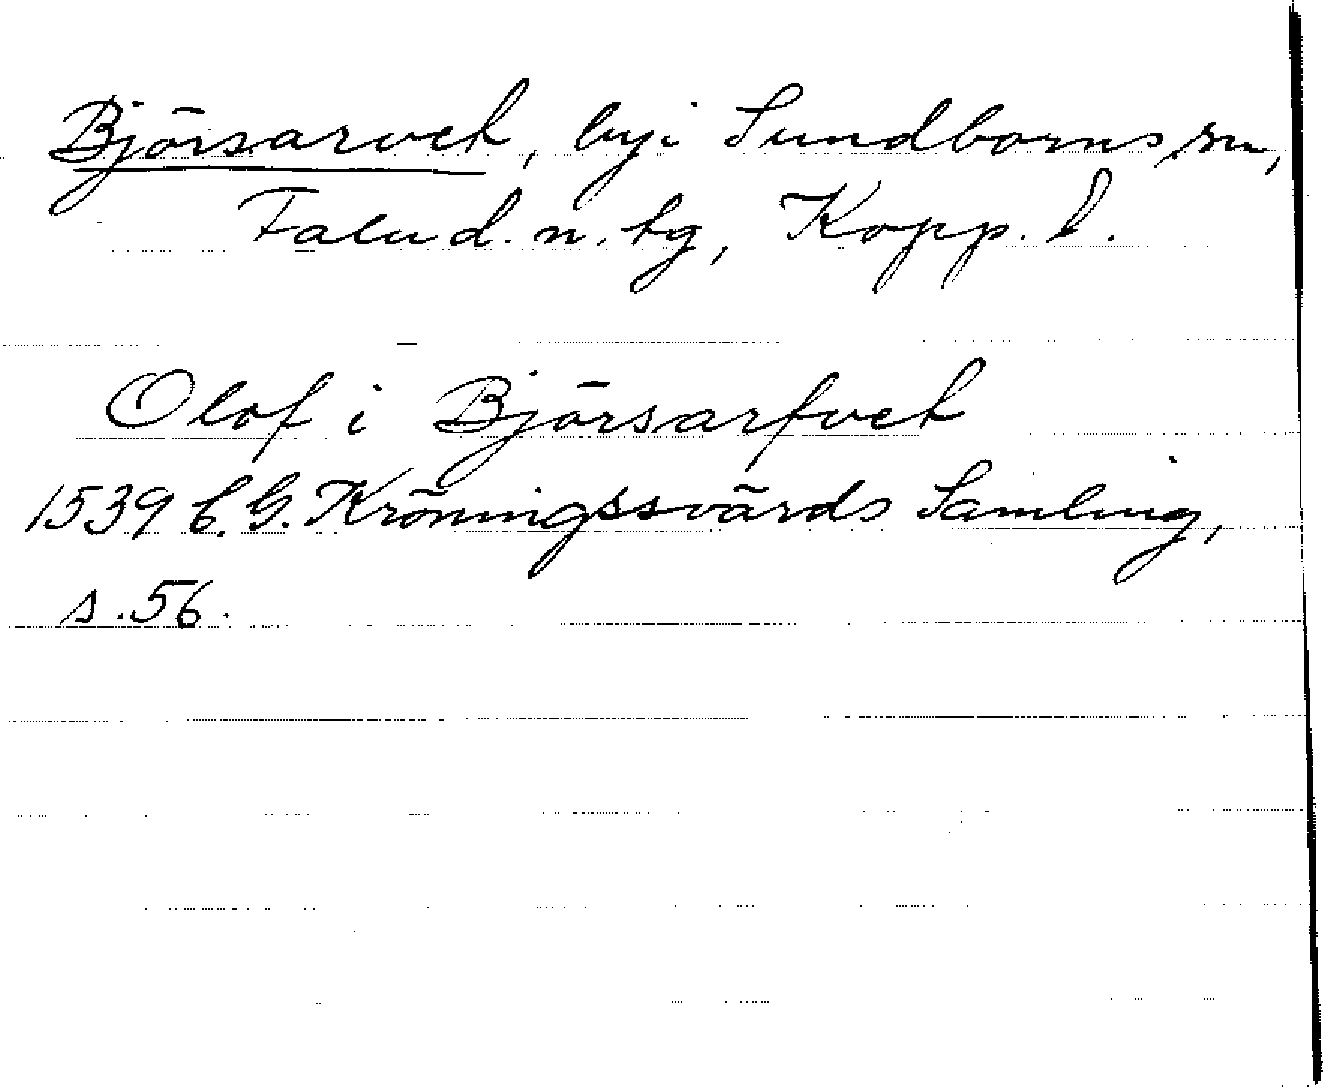 Björsarvet, by i Sundborns sn,
Falu d. n. tg, Kopp. l.
Olof i Björsarfvet
1539 C. G. Kröningssvärds Samling,
s. 56.